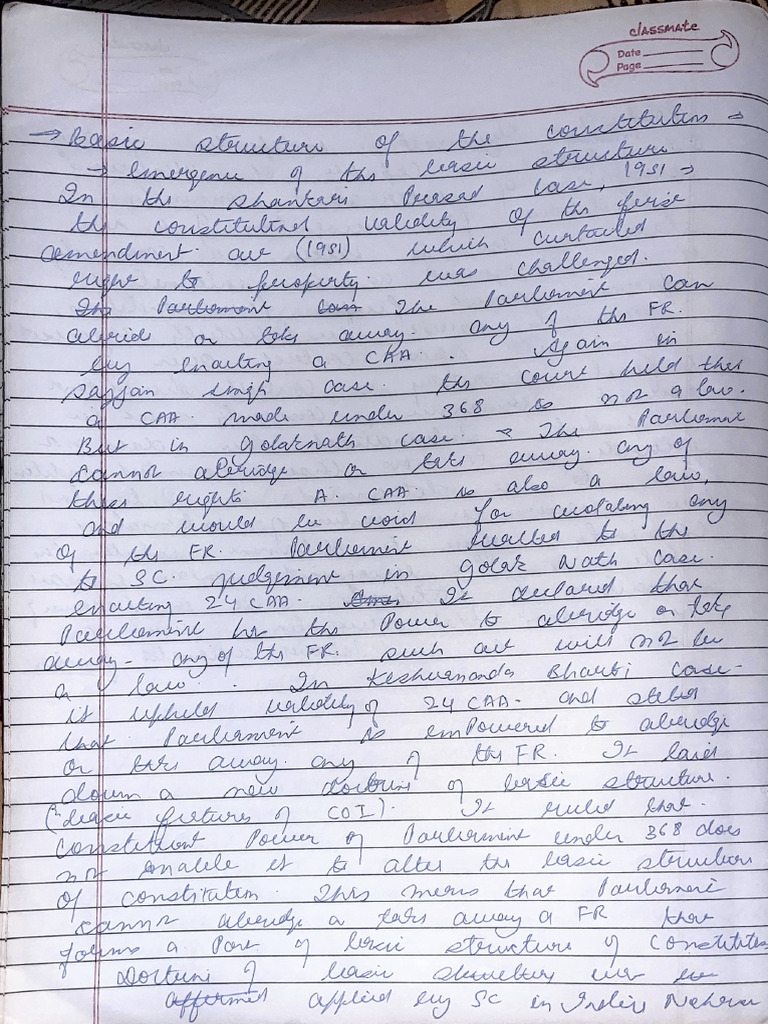 classmate
Date
Page
→ Basic structure of the constitution →
→ emergence of the basic structure
In the Shankari Prasad case, 1951 →
the constitutional validity of the first
amendment act (1951) which curtailed
right to property was challenged.
The Parliament can The Parliament can
abridge or take away any of the FR.
by enacting a CAA. Again in
Sajjan Singh case the court held that
a CAA made under 368 is not a law.
But in Golaknath case → The Parliament
cannot abridge or take away any of
these rights A CAA is also a law,
and would be void for violating any
of the FR. Parliament reacted to the
to SC judgement in Golak Nath case.
enacting 24 CAA. It declared that
Parliament has the Power to abridge or take
away any of the FR. such act will not be
a law. In Keshvananda Bharti case
it upheld validity of 24 CAA and stated
that Parliament is empowered to abridge
or take away any of the FR. It laid
down a new doctrine of basic structure.
("basic features of COI). It ruled that
constituent Power of Parliament under 368 does
not enable it to alter the basic structure
of constitution. This means that Parliament
cannot abridge or take away a FR that
forms a Part of basic structure of Constitution
Doctrine of basic structure was
affirmed applied by SC in Indira Nehru